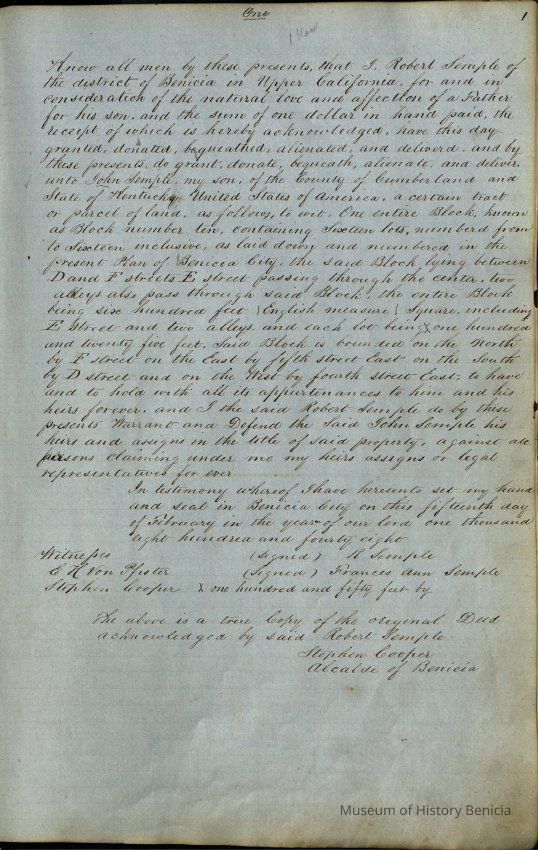 One
1
Know all men by these presents, that I, Robert Semple of
the district of Benicia in Upper California, for and in
consideration of the natural love and affection of a Father
for his son, and the sum of one dollar in hand paid, the
receipt of which is hereby acknowledged, have this day
granted, donated, bequeathed, alienated, and deliverd, and by
these presents, do grant, donate, bequeath, alienate, and deliver,
unto John Semple, my son, of the County of Cumberland and
State of Kentucky, United States of America, a certain tract
or parcel of land, as follows, to wit, One entire Block, known
as Block number ten, containing Sixteen lots, numberd from
to Sixteen inclusive, as laid down and numbered in the
present Plan of Benicia City, the said Block lying between
D and F streets E street passing through the center, two
alleys also pass through said Block, the entire Block
being six hundred feet (English measure) Square, including
E Street and two alleys, and each lot being X one hundred
and twenty five feet, Said Block is bounded on the North
by F street on the East by fifth street East, on the South
by D street and on the West by fourth street East, to have
and to hold with all its appurtenances to him and his
heirs forever, and I the said Robert Semple do by these
presents Warrant and Defend the Said John Semple his
heirs and assigns in the title of said property, against all
persons claiming under me my heirs assigns or legal
representatives for ever
In testimony whereof I have hereunto set my hand
and seal in Benicia City on this fifteenth day
of February in the year of our lord one thousand
eight hundred and fourty eight
Witnesses (Signed) R Semple
E H Von Pfister (Signed) Frances Ann Semple
Stephen Cooper X one hundred and fifty feet by
The above is a true Copy of the original Deed
acknowledged by said Robert Semple
Stephen Cooper
Alcalde of Benicia
Museum of History Benicia